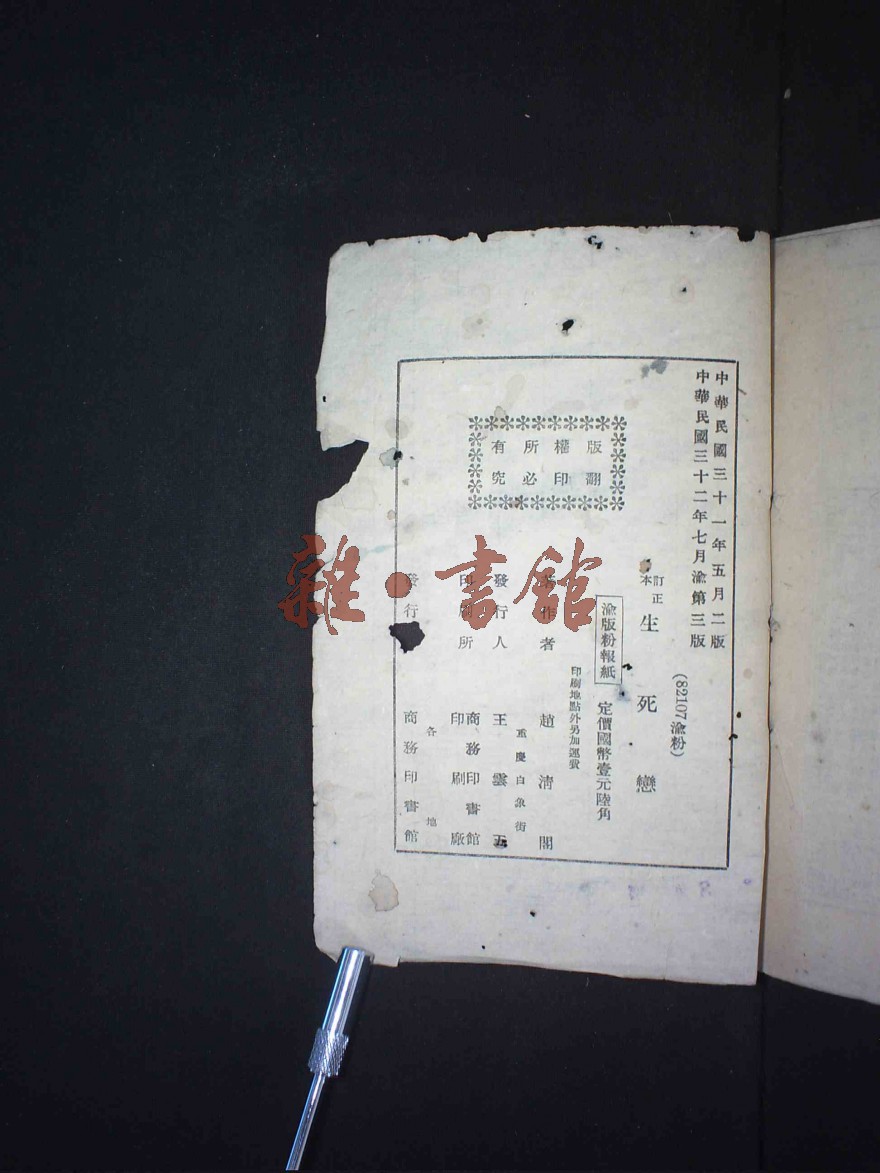 中華民國三十一年五月二版
中華民國三十二年七月渝第三版
(82107渝粉)
訂正本 生死戀
渝版粉報紙
定價國幣壹元陸角
印刷地點外另加運費
版權所有
翻印必究
著作者 趙清閣
重慶白象街
發行人 王雲五
印刷所 商務印書館印刷廠
各地
發行所 商務印書館
雜·書館